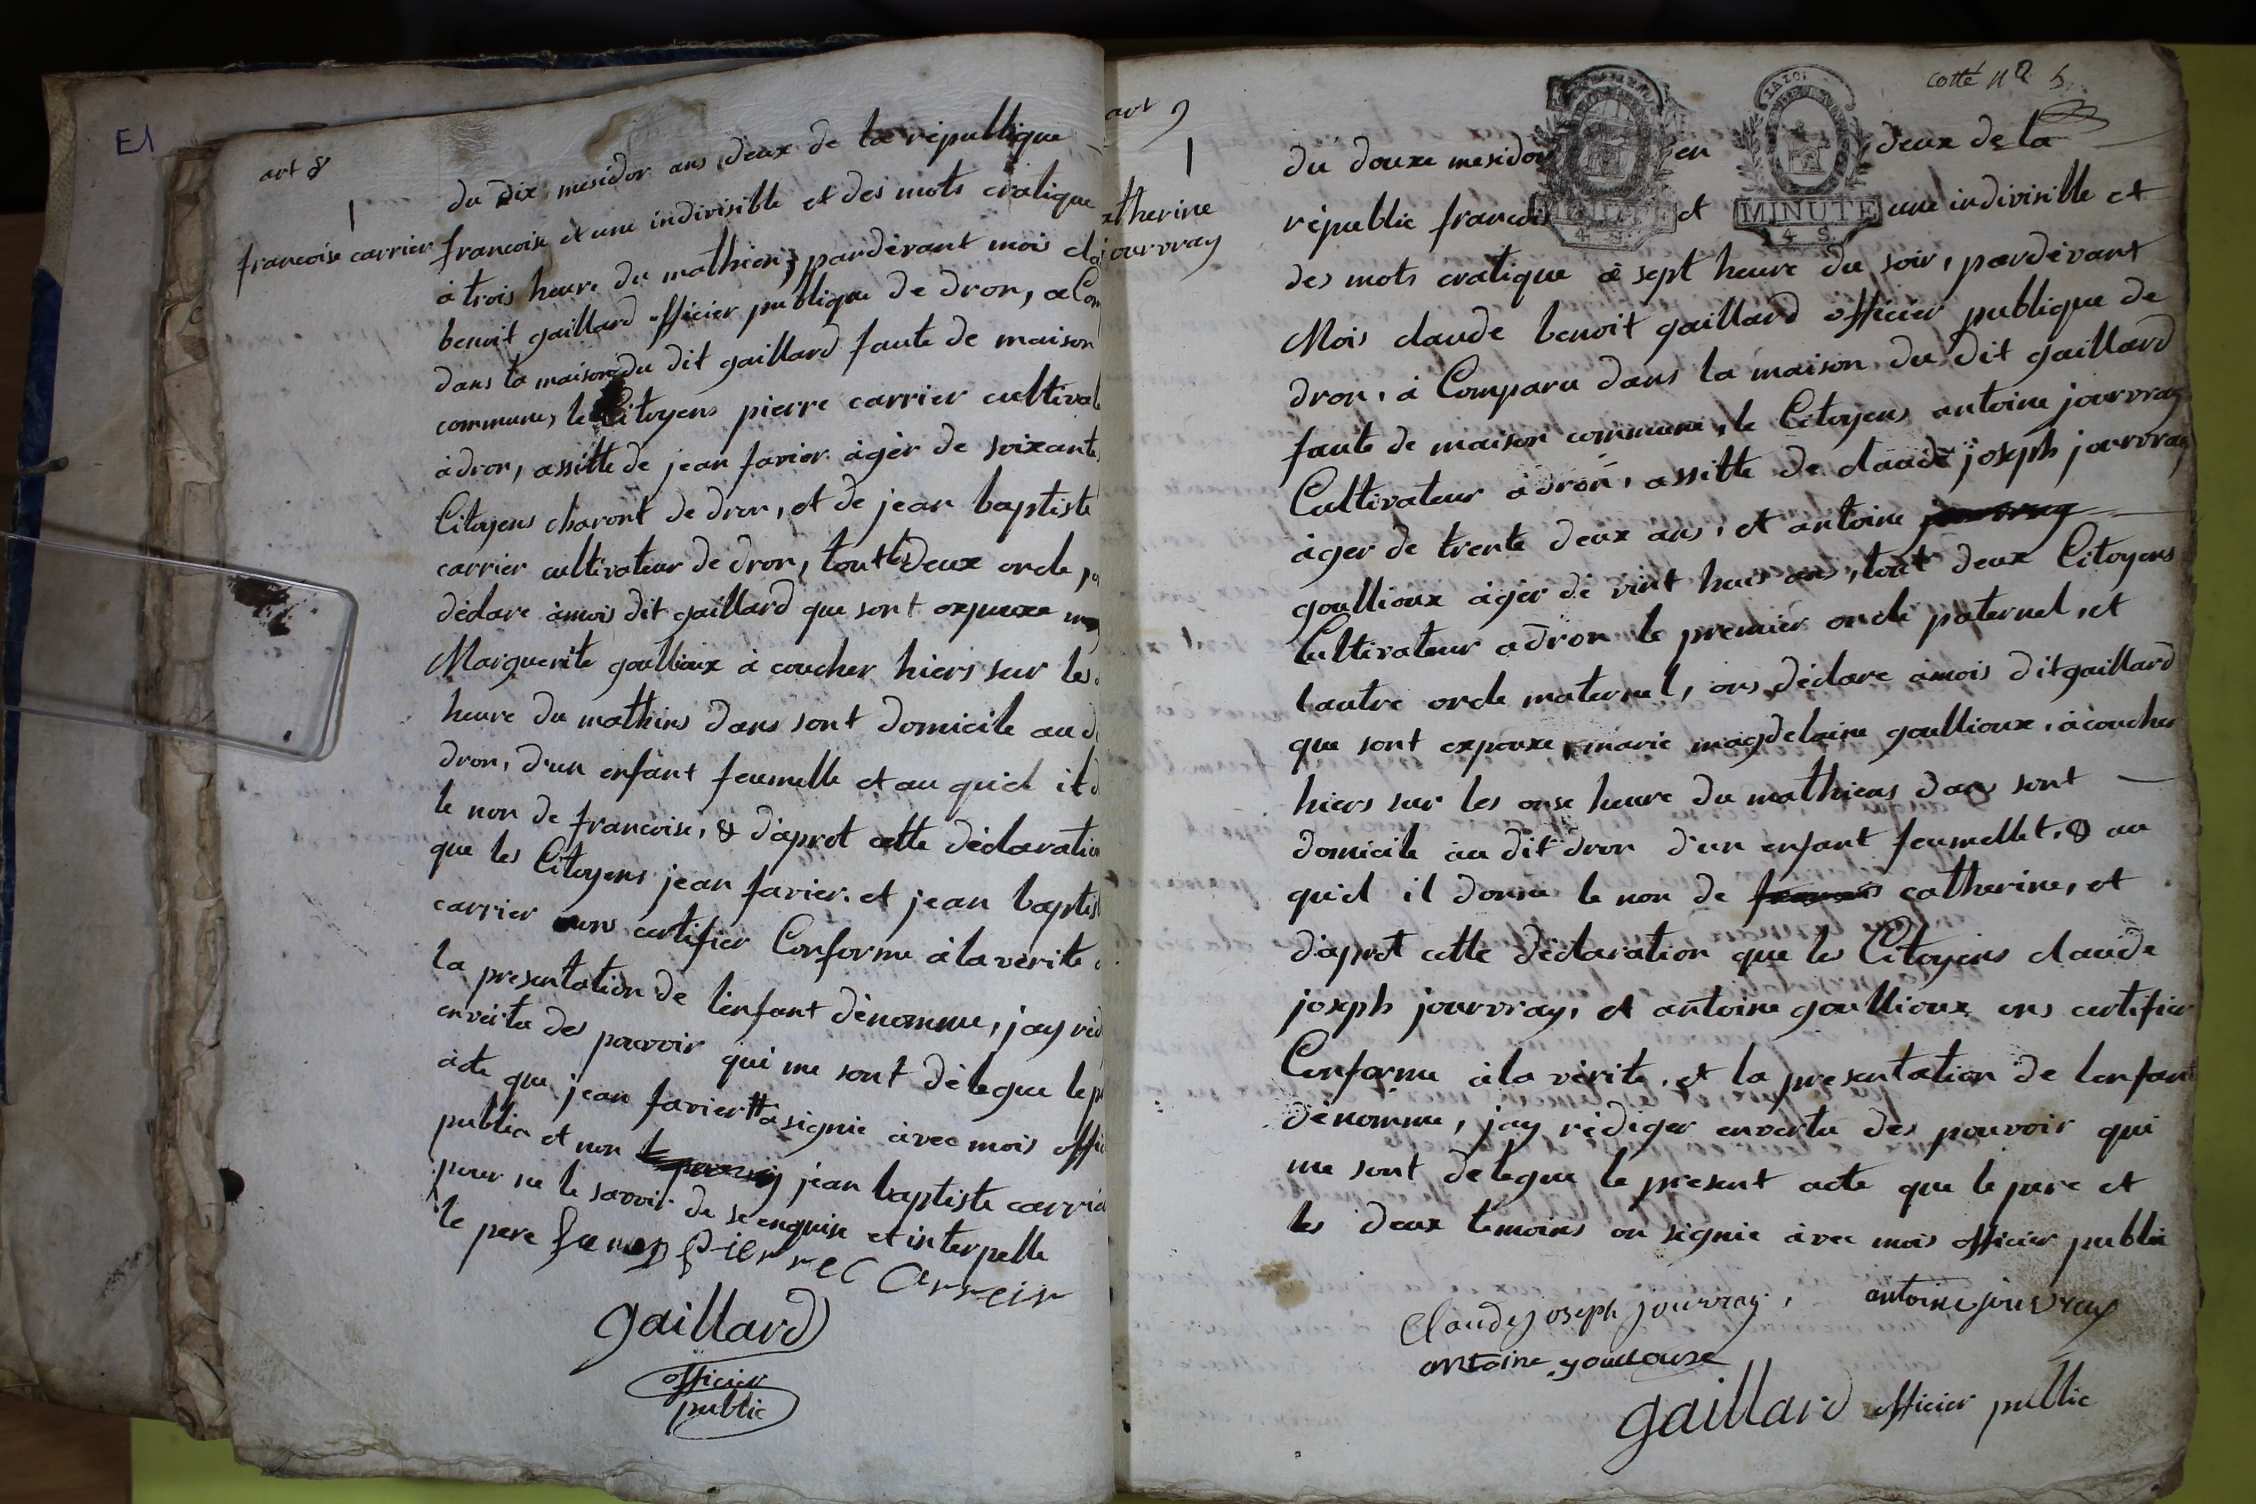 E1
art 8
1
francoise carrier
du dix mesidor ans deux de la république
francoise et une indivisible et des mots cratique
à trois heure du mathiens pardevant mois cla
benoit gaillard officier publique de dron, a Com
dans la maison du dit gaillard faute de maison
commune, le Citoyens pierre carrier cultivat
à dron, assitte de jean favier àgèr de soixante
Citoyens charont de dron, et de jean baptiste
carrier cultivateur de dron, tout les deux oncle
déclare àmois dit gaillard que sont expouxe
Marguerite goullioux à coucher hiers sur les
heure du mathins dans sont domicile au d
dron, d'un enfant feumelle et au quel il d
le non de francoise, & d'aprot cette déclaration
que les Citoyens jean favier et jean baptist
carrier ons certifier Conforme à la verite
la presentation de lenfant dénomme, jay réd
envertu des pouvoir qui me sont délegue le p
acte que jean favier # a signie àvec mois offic
public et non jean baptiste carrie
pour ne le savoir de se enquise et interpelle
le pere pierre Carreir
gaillard
officier
public
art 9
1
atherine
jourvray
cotté nº 5
du douxe mesidor en deux de la
républic francois et une indivisible et
MINUTE
4 S.
MINUTE
4 S.
des mots cratique à sept heure du soir, pardevant
Mois claude benoit gaillard officier publique de
dron, à Comparu dans la maison du dit gaillard
faute de maison commune, le Citoyens antoine jourvray
Cultivateur à dron, assitte de claude joseph jourvray
àger de trente deux ans, et antoine jourvray
goullioux àgér de vint huis ans, tout deux Citoyens
Cultivateur a dron le premier oncle paternel, et
lautre oncle maternel, ons déclare àmois dit gaillard
que sont expouxe, marie magdelaine goullioux, àcoucher
hiers sur les onse heure du mathiens dans sont
domicile au dit dron d'un enfant feumellet, & au
quel il donne le non de catherine, et
d'aprot cette déclaration que les Citoyens claude
joseph jourvray, et antoine goullioux ons certifier
Conforme à la vérite, et la presentation de lenfant
dénomme, jay rédiger envertu des pouvoir qui
me sont delegue le present acte que le pere et
les deux temoins on signie àvec mois officier public
Claude joseph jourvray, antoine jouvray
antoine goullouxe
gaillard officier public